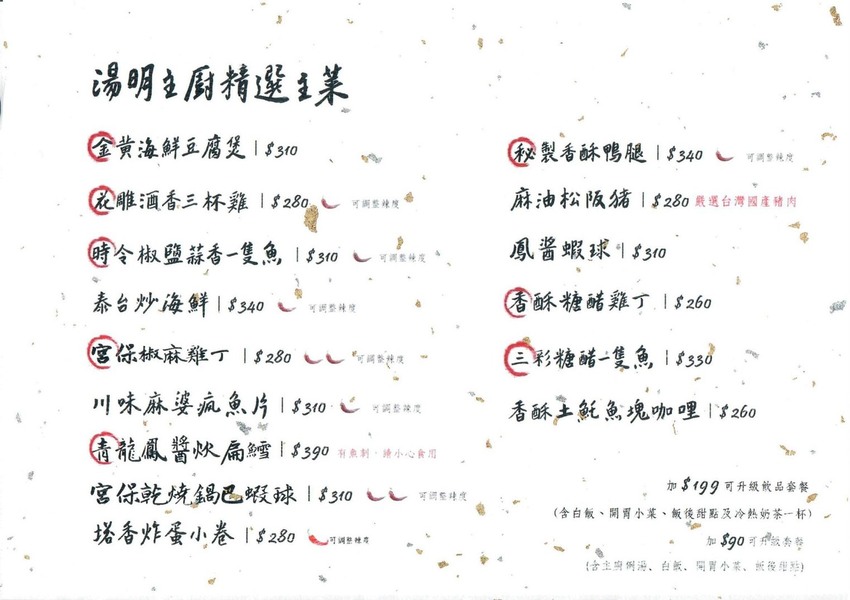 湯明主廚精選主菜
金黃海鮮豆腐煲 | $310
花雕酒香三杯雞 | $280 可調整辣度
時令椒鹽蒜香一隻魚 | $310 可調整辣度
泰台炒海鮮 | $340 可調整辣度
宮保椒麻雞丁 | $280 可調整辣度
川味麻婆瘋魚片 | $310 可調整辣度
青龍鳳醬炊扁鱈 | $390 有魚刺，請小心食用
宮保乾燒鍋巴蝦球 | $310 可調整辣度
塔香炸蛋小卷 | $280 可調整辣度
秘製香酥鴨腿 | $340 可調整辣度
麻油松阪豬 | $280 嚴選台灣國產豬肉
鳳醬蝦球 | $310
香酥糖醋雞丁 | $260
三彩糖醋一隻魚 | $330
香酥土魠魚塊咖哩 | $260
加$199可升級飲品套餐
(含白飯、開胃小菜、飯後甜點及冷熱奶茶一杯)
加$90可升級套餐
(含主廚例湯、白飯、開胃小菜、飯後甜點)